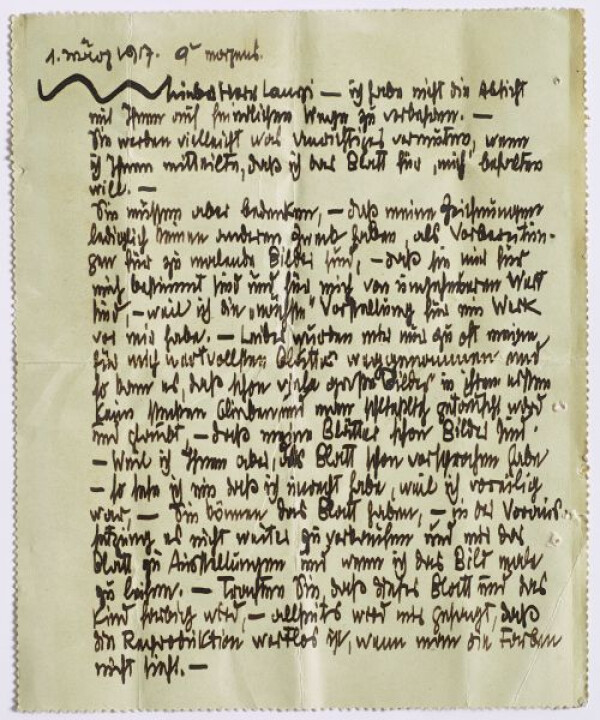 1. März 1917. 9h morgens.
Lieber Herr Lanyi — ich habe nicht die Absicht
mit Ihnen auf feindlichem Wege zu verkehren. —
Sie werden vielleicht was Unrichtiges vermuten, wenn
ich Ihnen mitteilte, daß ich das Blatt für „mich“ behalten
will. —
Sie müssen aber bedenken, — daß meine Zeichnungen
lediglich keinen anderen Zweck haben, als Vorbereitun-
gen für zu malende Bilder sind, — daß sie nur für
mich bestimmt sind und für mich von ungeheurem Wert
sind, — weil ich die „nächste“ Vorstellung für ein Werk
vor mir habe. — Leider wurden mir nur zu oft meine,
für mich wertvollsten Blätter weggenommen und
so kam es, daß schon viele große Bilder in ihrem ersten
Keim stecken blieben und man schließlich getäuscht wird
und glaubt, — daß meine Blätter schon Bilder sind.
— Weil ich Ihnen aber, das Blatt schon versprochen habe
— so sehe ich ein daß ich unrecht habe, weil ich voreilig
war, — Sie können das Blatt haben, — in der Voraus-
setzung es nicht weiter zu verkaufen und mir das
Blatt zu Ausstellungen und wenn ich das Bild male
zu leihen. — Trachten Sie, daß dieses Blatt und das
Kind farbig wird, — allseits wird mir gesagt, daß
die Reproduktion wertlos ist, wenn man die Farben
nicht sieht. —